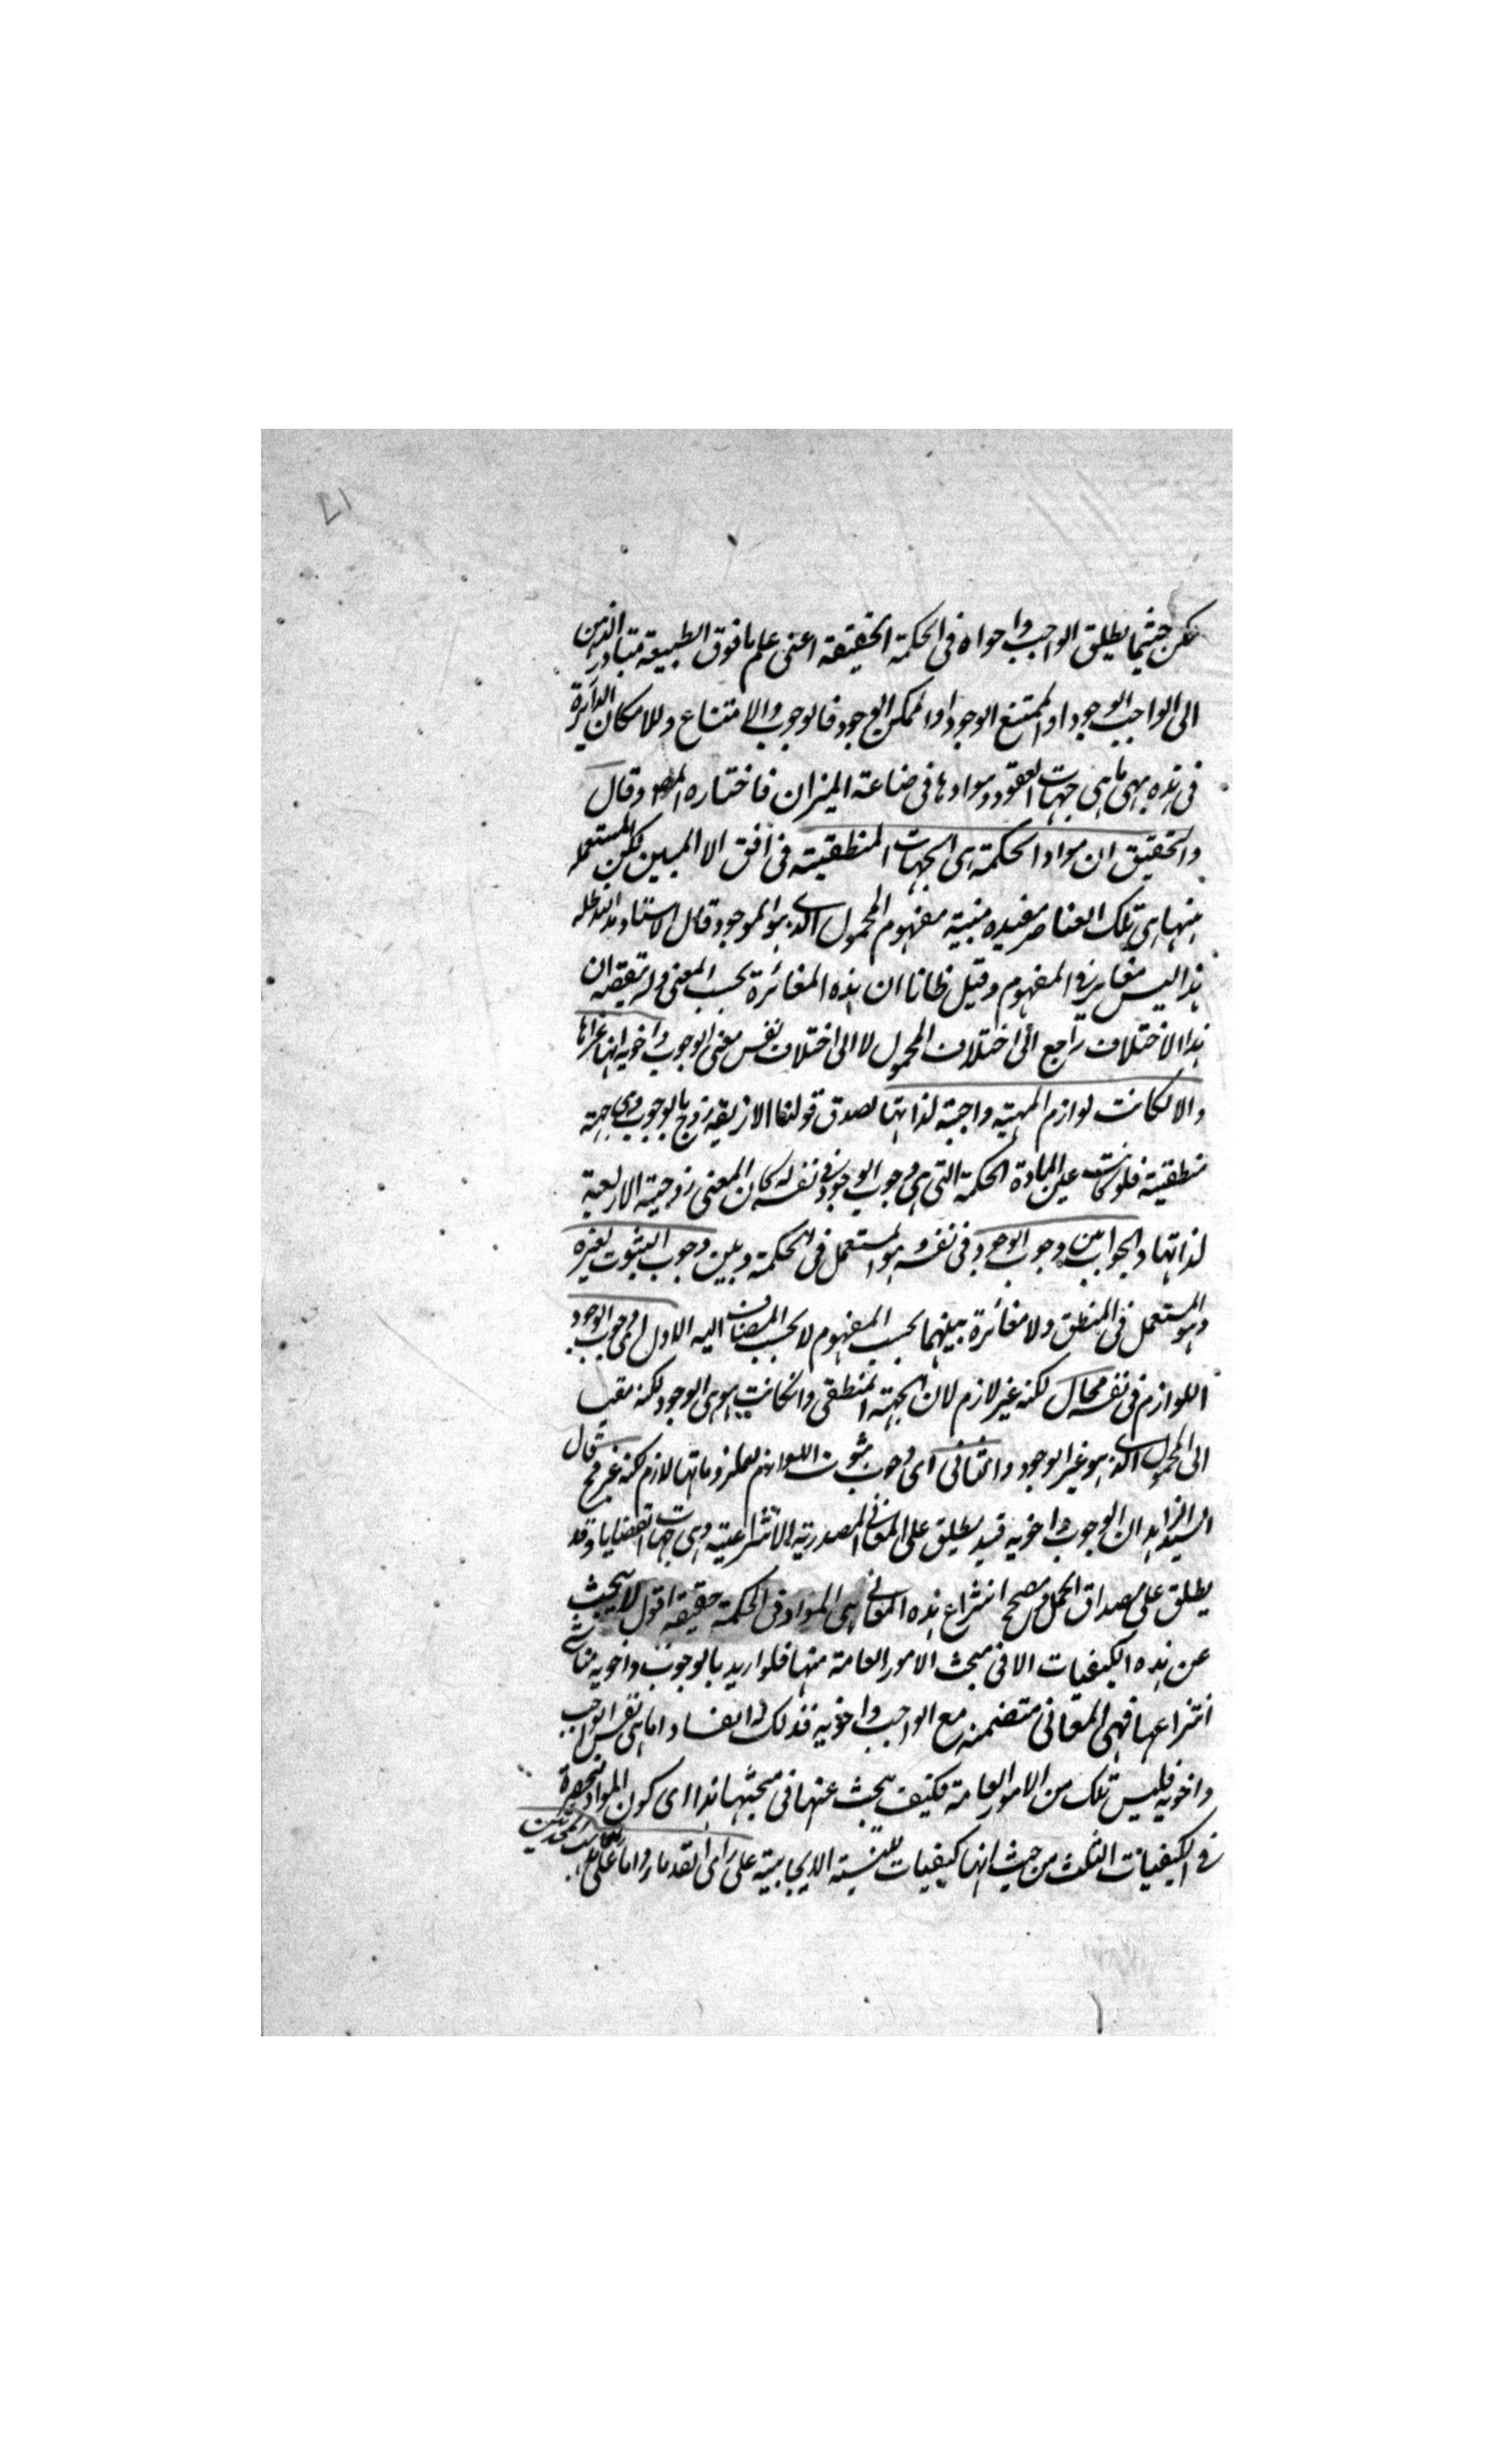 لكن حيثما يطلق الواجب واخواه فى الحكمة الحقيقة اعنى علم ما فوق الطبيعة يتبادر الذهن
الى الواجب الوجود او الممتنع الوجود او الممكن الوجود فالوجوب والامتناع وللامكان الدائرة
فى هذه هى ما هى جهات العقود وموادها فى صناعة الميزان فاختاره المصـ وقال
والتحقيق ان مواد الحكمة هى الجهات المنطقية فى افق الا المبين لكن المستعمله
منها هى تلك العناصر مفيده مفهوم المحمول الذے هو الموجود قال الاستاد مد الله ظله
هذا ليس مغايرة فى المفهوم وقيل ظانا ان هذه المغائرة بحسب المعنى ان
هذا الاختلاف راجع الى اختلاف المحمول لا الى اختلاف نفس معنى الوجوب واخويه انها غيرها
والا لكانت لوازم المهية واجبة لذاتها لصدق قولنا الاربعه زوج بالوجوب وهى جهة
منطقية فلو كانت عين المادة الحكمة التى هى وجوب الوجود فى نفسه لكان المعنى زوجية الاربعة
لذاتها والجواب بين وجوب الوجود فى نفسه وهو المستعمل فى الحكمة وبين وجوب الثبوت لغيره
وهو المستعمل فى المنطق ولا مغائرة بينهما بحسب المفهوم لا بحسب المضاف اليه الاول اى وجوب الوجود
اللوازم فى نفسه محال لكنه غير لازم لان الجهة المنطقى وانكانت هى الوجود لكنه
الى المحمول الذے هو غير الوجود والثانى اى وجوب ثبوت اللوازم لملزوماتها لازم لكنه غير مح قال
السيد الزاهد ان الوجوب واخويه قد يطلق على المعانى المصدرية الانتزاعية وهى جهات القضايا وقد
يطلق على مصداق الحمل ومصحح انتزاع هذه المعانى هى المواد فى الحكمة حقيقه اقول لا يبحث
عن هذه الكيفيات الا فى مبحث الامور العامة منها فلو اريد بالوجوب واخويه مناشے
انتزاعها فهى المعانى متضمنه مع الواجب واخويه فذلك له الفساد اما هى نفس الواجب
واخويه فليس تلك من الامور العامة فكيف يبحث عنها فى مبحثها هذا اى كون المواد منحصرة
فى الكيفيات الثلث من حيث انها كيفيات للنسبة الايجابية على راى القدماء واما على
المحدثين